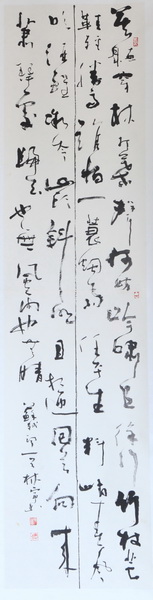 莫聽穿林打葉聲何妨吟嘯且徐行竹杖芒
鞋輕勝馬誰怕一蓑煙雨任平生料峭春風
吹酒醒微冷山頭斜照却相迎回首向來
蕭瑟處歸去也無風雨也無晴